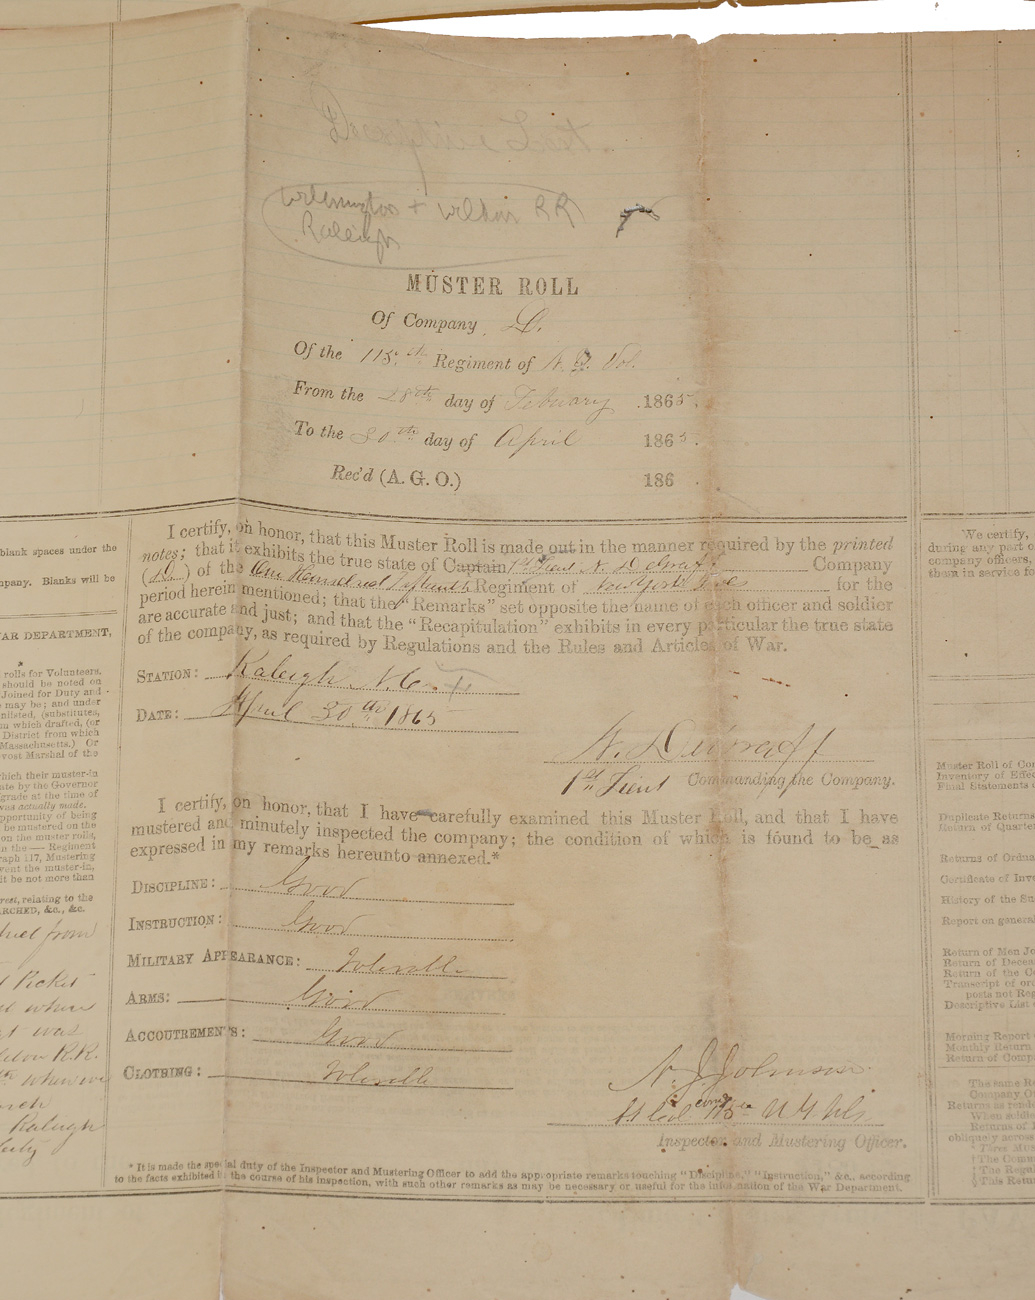 Wilmington + Weldon RR
Raleigh
MUSTER ROLL
Of Company D.
Of the 115th Regiment of N.Y. Vol.
From the 28th day of February 1865.
To the 30th day of April 1865.
Rec'd (A. G. O.) 186 .
I certify, on honor, that this Muster Roll is made out in the manner required by the printed
notes; that it exhibits the true state of Captain 1st Lieut N. DeGraff Company
(D.) of the One Hundred Fifteenth Regiment of New York Vols for the
period herein mentioned; that the "Remarks" set opposite the name of each officer and soldier
are accurate and just; and that the "Recapitulation" exhibits in every particular the true state
of the company, as required by Regulations and the Rules and Articles of War.
STATION: Raleigh N.C.
DATE: April 30th 1865
N. DeGraff
1st Lieut Commanding the Company.
I certify, on honor, that I have carefully examined this Muster Roll, and that I have
mustered and minutely inspected the company; the condition of which is found to be as
expressed in my remarks hereunto annexed.*
DISCIPLINE: Good
INSTRUCTION: Good
MILITARY APPEARANCE: Tolerable
ARMS: Good
ACCOUTREMENTS: Good
CLOTHING: Tolerable
N. J. Johnson
Lt Col comdg 115th N Y Vols
Inspector and Mustering Officer.
* It is made the special duty of the Inspector and Mustering Officer to add the appropriate remarks touching "Discipline," "Instruction," &c., according
to the facts exhibited in the course of his inspection, with such other remarks as may be necessary or useful for the information of the War Department.
blank spaces under the
mpany. Blanks will be
WAR DEPARTMENT,
rolls for Volunteers.
should be noted on
Joined for Duty and
may be; and under
nlisted, (substitutes,
m which drafted, (or
District from which
Massachusetts.) Or
vost Marshal of the
which their muster-in
ate by the Governor
grade at the time of
was actually made.
pportunity of being
be mustered on the
om the muster rolls,
n the — Regiment
raph 117, Mustering
vent the muster-in,
it be not more than
rest, relating to the
ARCHED, &c., &c.
from
Picket
where
was
R.R.
when we
Raleigh
We certify,
during any part o
company officers,
them in service fo
Muster Roll of Co
Inventory of Effe
Final Statements
Duplicate Returns
Return of Quarte
Returns of Ordna
Certificate of Inve
History of the Su
Report on general
Return of Men Jo
Return of Decea
Return of the Co
Transcript of or
posts not Reg
Descriptive List
Morning Report
Monthly Return
Return of Comp
The same R
Company O
Returns as rende
When addit
Returns of
obliquely across